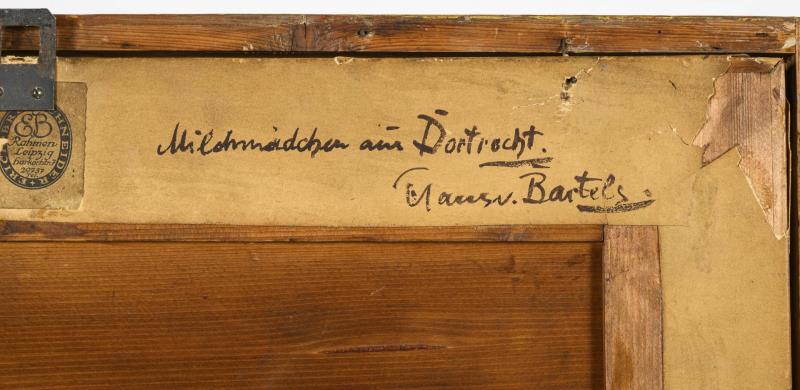 Milchmädchen aus Dortrecht.
Hans v. Bartels.
EB
Rahmen
Leipzig